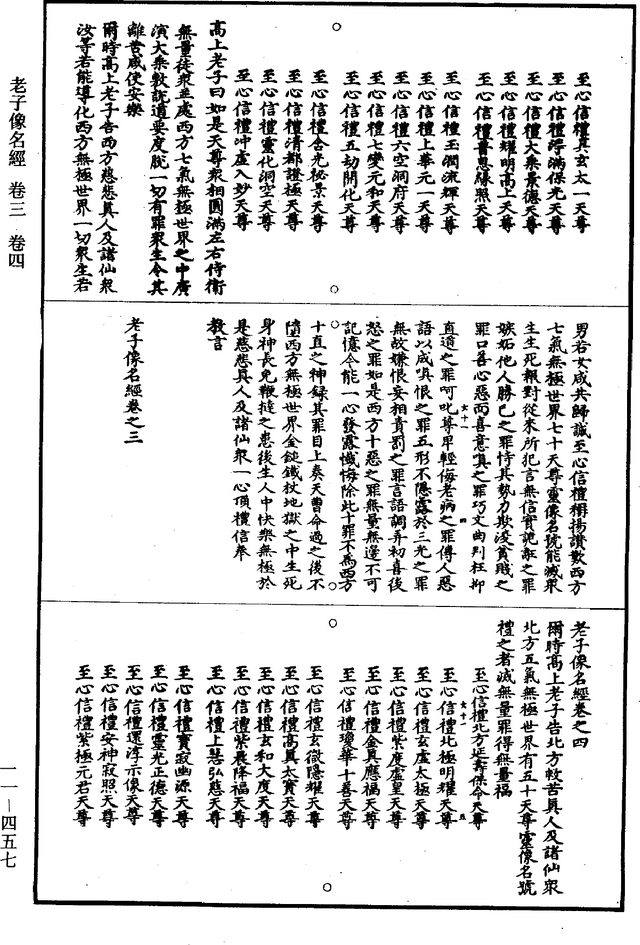 至心信禮真玄太一天尊
至心信禮得滿保光天尊
至心信禮大乘景德天尊
至心信禮耀明高上天尊
至心信禮普惠緣照天尊
至心信禮玉潤流輝天尊
至心信禮上華元一天尊
至心信禮六空洞府天尊
至心信禮七變元和天尊
至心信禮五劫開化天尊
至心信禮含光秘景天尊
至心信禮清都證極天尊
至心信禮靈化洞空天尊
至心信禮沖虛入妙天尊
高上老子曰如是天尊眾相圓滿左右侍衛
無量徒眾並處西方七氣無極世界之中廣
演大乘敷說道要度脫一切有罪眾生令其
離苦咸使安樂
爾時高上老子告西方慈悲真人及諸仙眾
汝等若能導化西方無極世界一切眾生若
男若女咸共歸誠至心信禮稱揚讚歎西方
七氣無極世界七十天尊靈像名號能滅眾
生生死報對從來所犯言無信實詭誑之罪
嫉妬他人勝己之罪恃其勢力欺凌貧賤之
罪口善心惡而喜意嗔之罪巧文曲判枉抑
女十一 四
直道之罪呵叱尊卑輕侮老病之罪傳人惡
語以成嗔恨之罪五形不隱露於三光之罪
無故嫌恨妄相責罰之罪言語調弄初喜後
怒之罪如是西方十惡之罪無量無邊不可
記憶今能一心發露懺悔除此十罪不為西方
十直之神録其罪目上奏天曹命過之後不
墮西方無極世界金鎚鐵杖地獄之中生死
身神長免鞭撻之患後生人中快樂無極於
是慈悲真人及諸仙眾一心頂禮信奉
教言
老子像名經卷之三
老子像名經卷之四
爾時高上老子告北方救苦真人及諸仙眾
北方五氣無極世界有五十天尊靈像名號
禮之者滅無量罪得無量福
至心信禮北方延壽保命天尊
至心信禮北極明耀天尊
女十一 五
至心信禮玄虛太極天尊
至心信禮紫度虛皇天尊
至心信禮金真應福天尊
至心信禮瓊華十善天尊
至心信禮玄微隱耀天尊
至心信禮高真太寶天尊
至心信禮玄和大度天尊
至心信禮紫晨降福天尊
至心信禮上慧弘慈天尊
至心信禮寶寂幽源天尊
至心信禮靈光正德天尊
至心信禮還淳示像天尊
至心信禮安神寂照天尊
至心信禮紫極元君天尊
老子像名經 卷三 卷四
一一—四五七